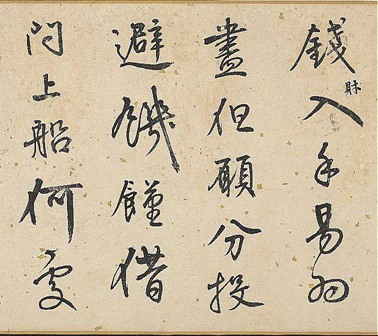 錢財入手易為
盡但願分投
避饑饉借
問上船何處